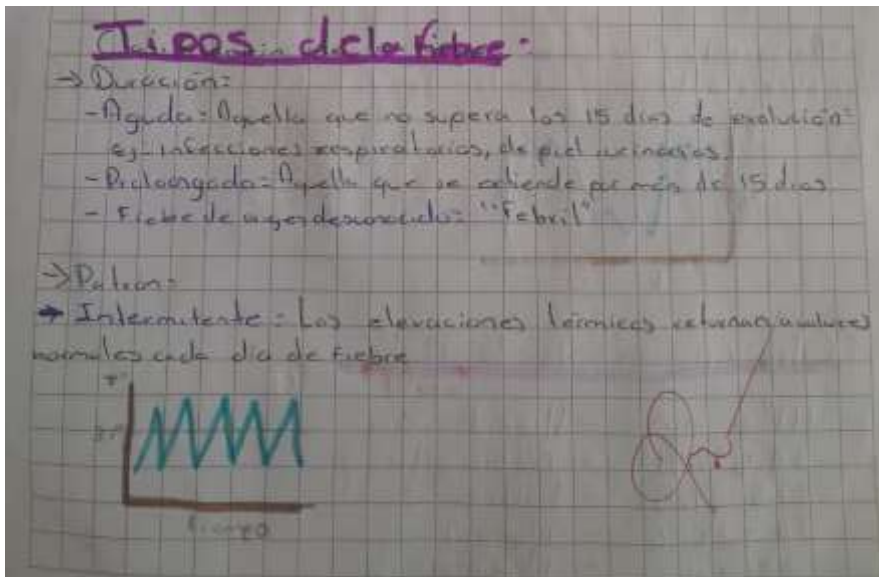 Tipos de la fiebre:
→ Duración:
- Aguda: Aquella que no supera los 15 días de evolución
Ej- infecciones respiratorias, de piel urinarias.
- Prolongada: Aquella que se extiende por más de 15 días
- Fiebre de origen desconocido: "Febril"
→ Patron:
→ Intermitente: Las elevaciones térmicas retornan a valores
normales cada día de fiebre
T°
37°
tiempo